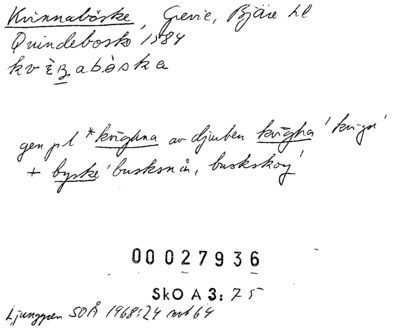 Kvinnaböske, Grevie, Bjäre hd
Quindebosko 1584
kvìnabòska
gen pl *krighna av djurben krigha 'kriga'
+ byske 'busksnår, buskskog'
00027936
SkO A 3: 75
Ljunggren SOÅ 1968:24 not 64